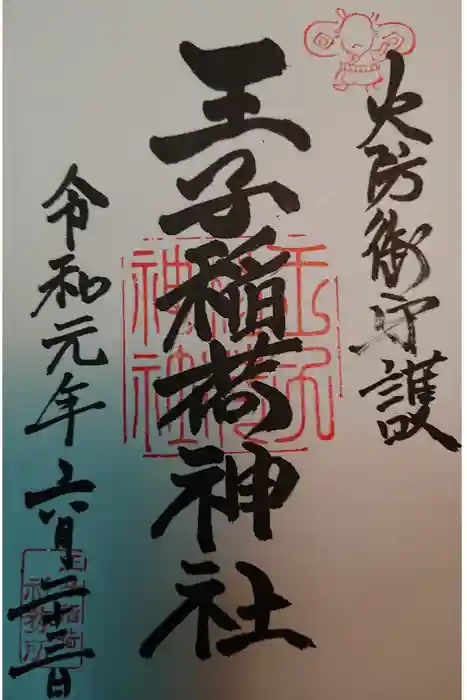 火防衛守護
王子稲荷神社
王子
稲荷
神社
令和元年六月二十三日
王子稲荷
社務所